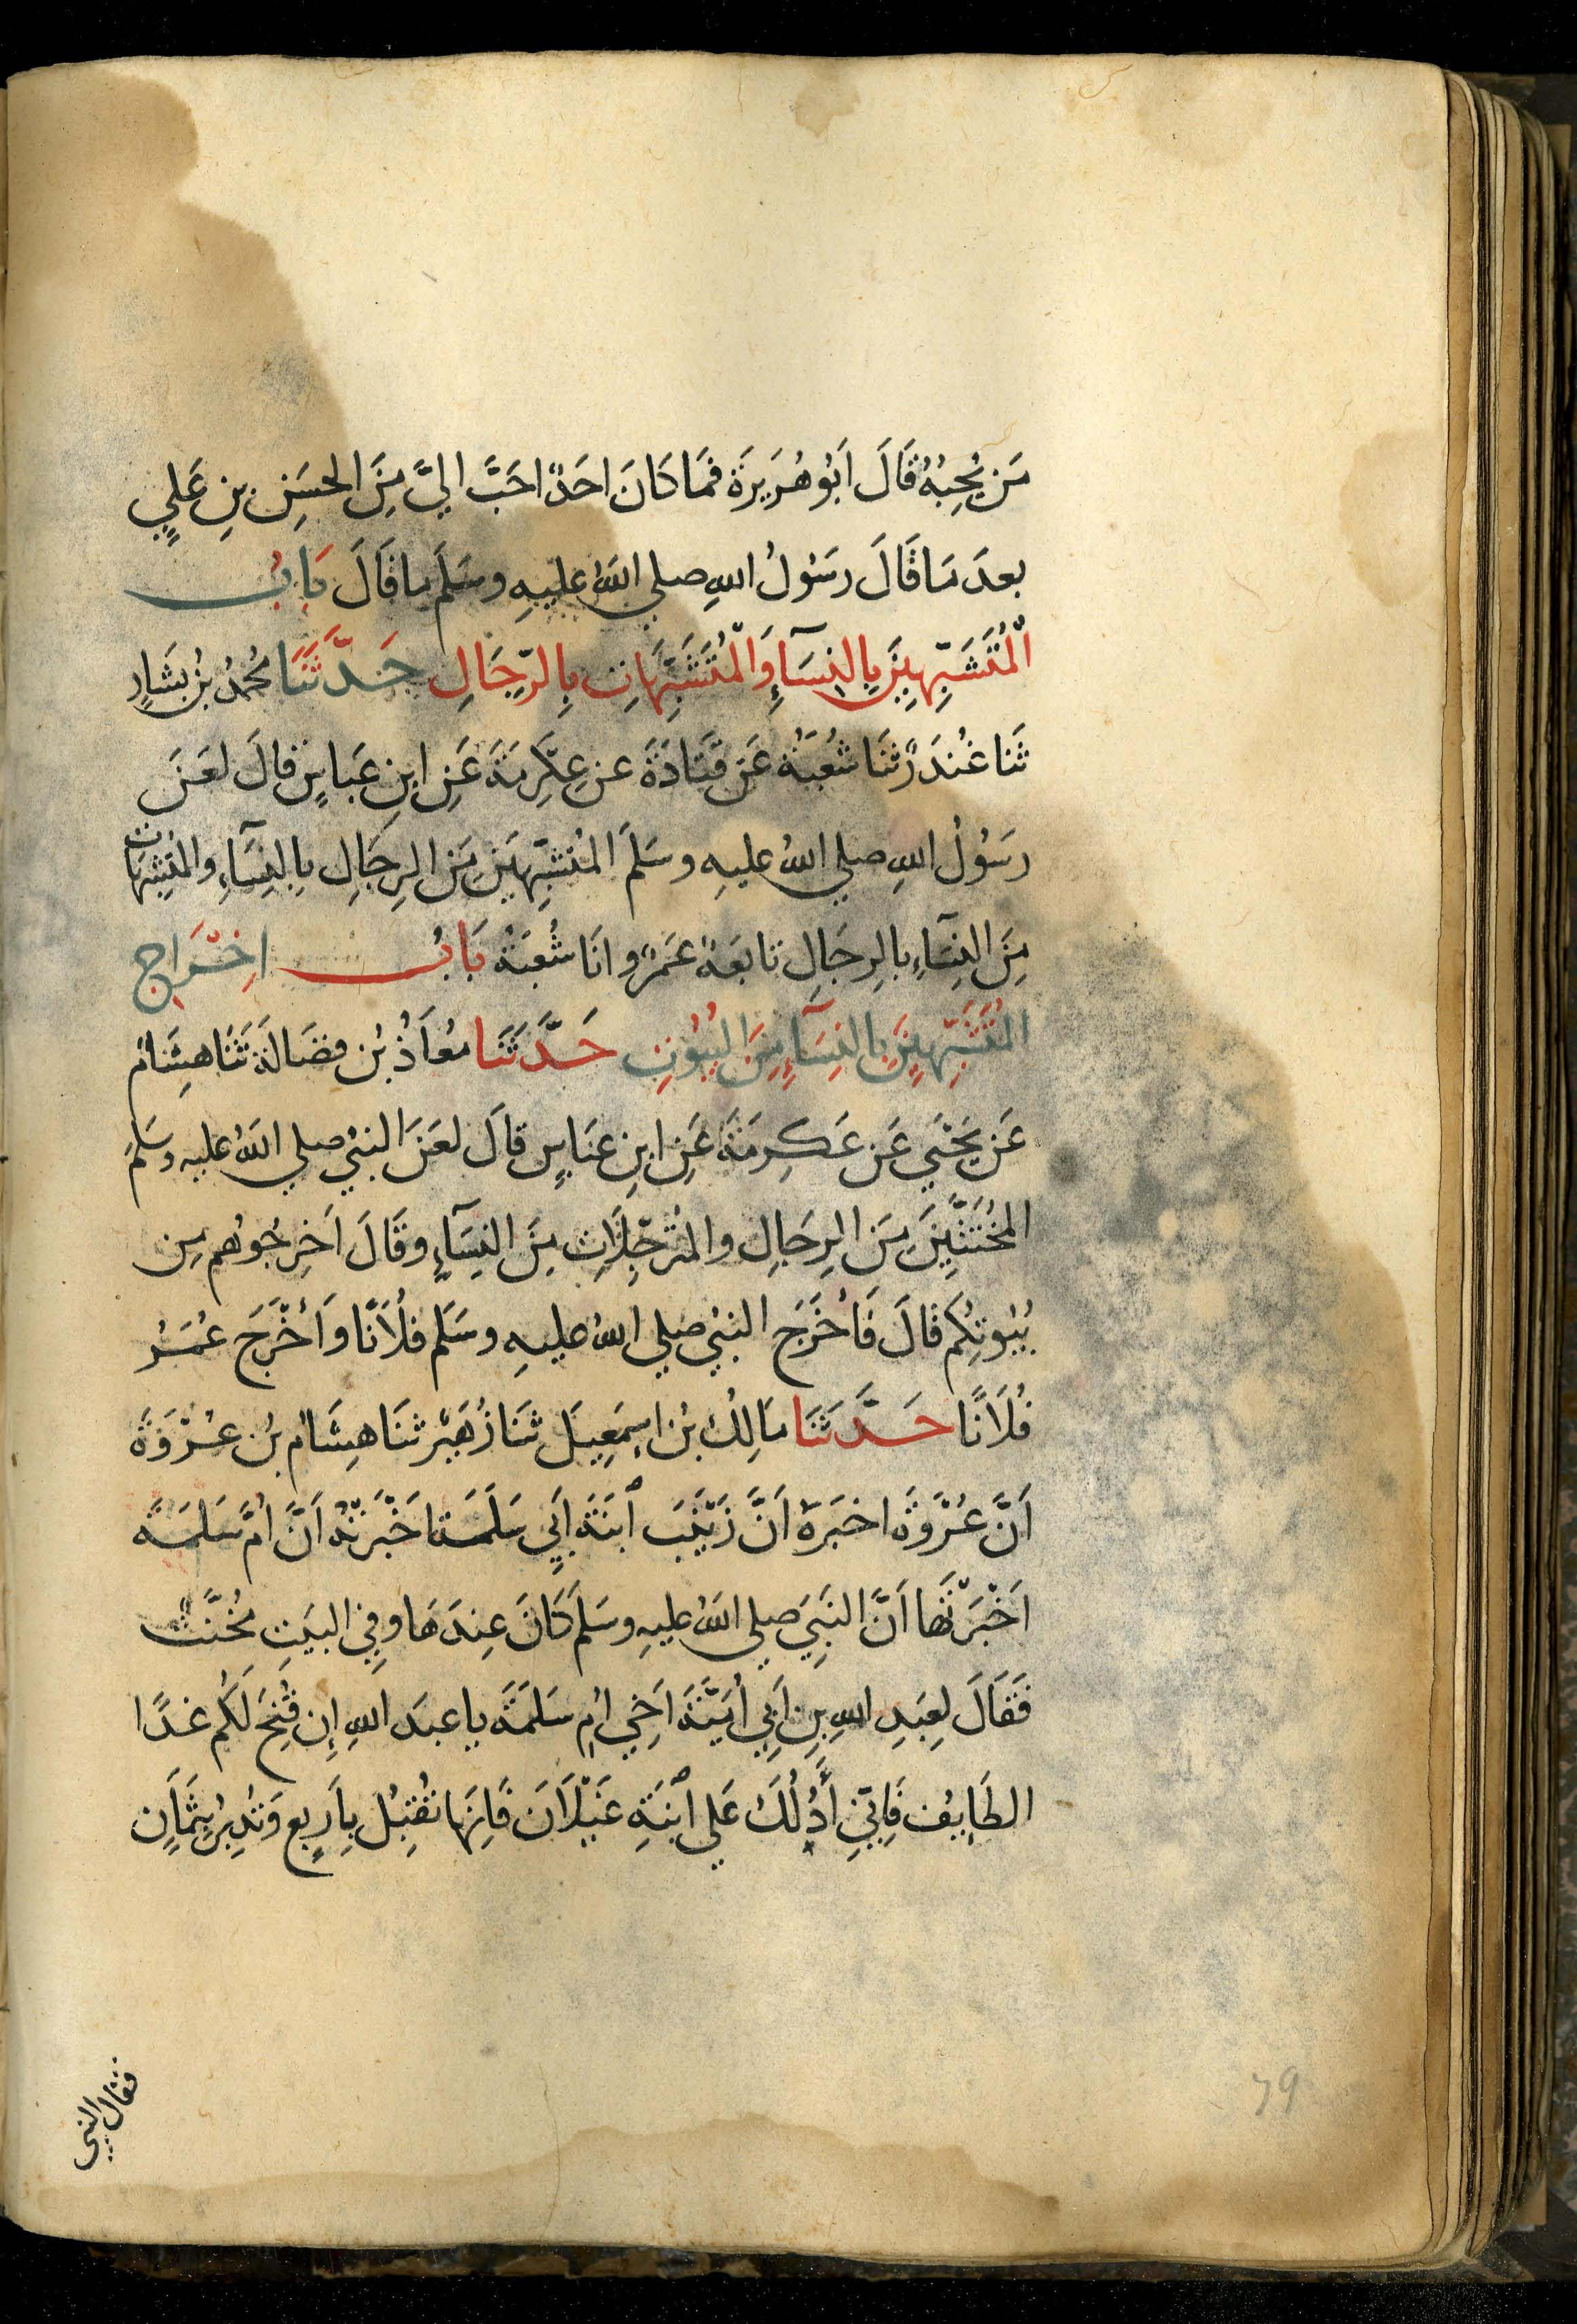 مَن يُحِبُهُ قَالَ اَبُو هُرَيرَة فَمَا كَانَ احَدٌ احَبَّ اليَّ مِنَ الحسَنِ بنِ عَلِيٍ
بعدَ مَا قَالَ رسَوُلُ اللهِ صلي اللهُ عليهِ وسَلَم ما قَالَ بَابُ
الْمُتَشَبِّهِينَ بِالنِسَآءِ وَالْمُتَشَبِّهَاتِ بِالرِّجَالِ حَدَّثَنَا مُحمدُ بنُ بَشَارٍ
ثَنا غُندَرٌ ثَنَا شُعُبَةُ عَن قَتَادَةَ عن عِكرِمَةَ عَنِ ابنِ عَباسٍ قالَ لعَنَ
رسَوُلُ اللهِ صلي اللهُ عليهِ وسَلَم المُتشبِّهيَنَ مِنَ الرِجَالِ بِالنِسَاءِ والمُتشِبهَات
مِنَ النِسَاءِ بالرِجَالِ تابَعَهُ عَمرٌو انَا شُعبَةُ بَابُ اخِرَاجِ
المُتَشَبِّهِينَ بِالنِسَآءِ مِنَ البُيُوُتِ حَدَّثَنَا مُعَاذُ بنُ فضَالَة ثَنَا هِشَامٌ
عَن يَحيَي عَن عَكِرمَةَ عَنِ ابنِ عبَاسٍ قالَ لعَنَ النبيُ صلي اللهُ عليه وسَلمَ
المُخَنَثِّينَ مِنَ الرِجَالِ والمُترجِّلَاتِ مِنَ النِسَآءِ وقَالَ اَخرِجُوهُم مِن
بُيُوتِكُم قالَ فَاَخُرَجَ النبيُ صلي اللهُ عليهِ وسَلَم فُلَانًا وَاَخْرَجَ عُمَرُ
فُلَانًا حَدَّثَنَا مَالِكُ بنُ اسِمَعِيلَ ثنَا زُهَيْر ثنَا هِشَامُ بنُ عُرْوَةَ
اَنَّ عُرْوَةَ اخبَرَهُ اَنَّ زَيْنَبَ ابنَةَ اَبِي سَلَمَة اَخْبَرَتهُ اَنَّ امَّ سَلمَةَ
اَخْبَرَتْهَا اَنَّ النبَيَ صلي اللهُ عليهِ وسَلمَ كَانَ عِندَهَا وفِي البيَتِ مُخَنَّثٌ
فَقَالَ لِعَبدِ اللهِ بنِ اَبِي اُمَيَّةَ اَخِي امِ سَلمَةَ يا عبدَ اللهِ اِن فُتِحَ لَكُم غدًا
الطَايِفُ فَاِنّي اَدُلُّكَ عَلي ابْنَةِ غَيْلَانَ فَاِنهَا تُقْبِلُ بِاَربعٍ وَتُدبِرُ بِثمَانٍ
فقال النبي
79